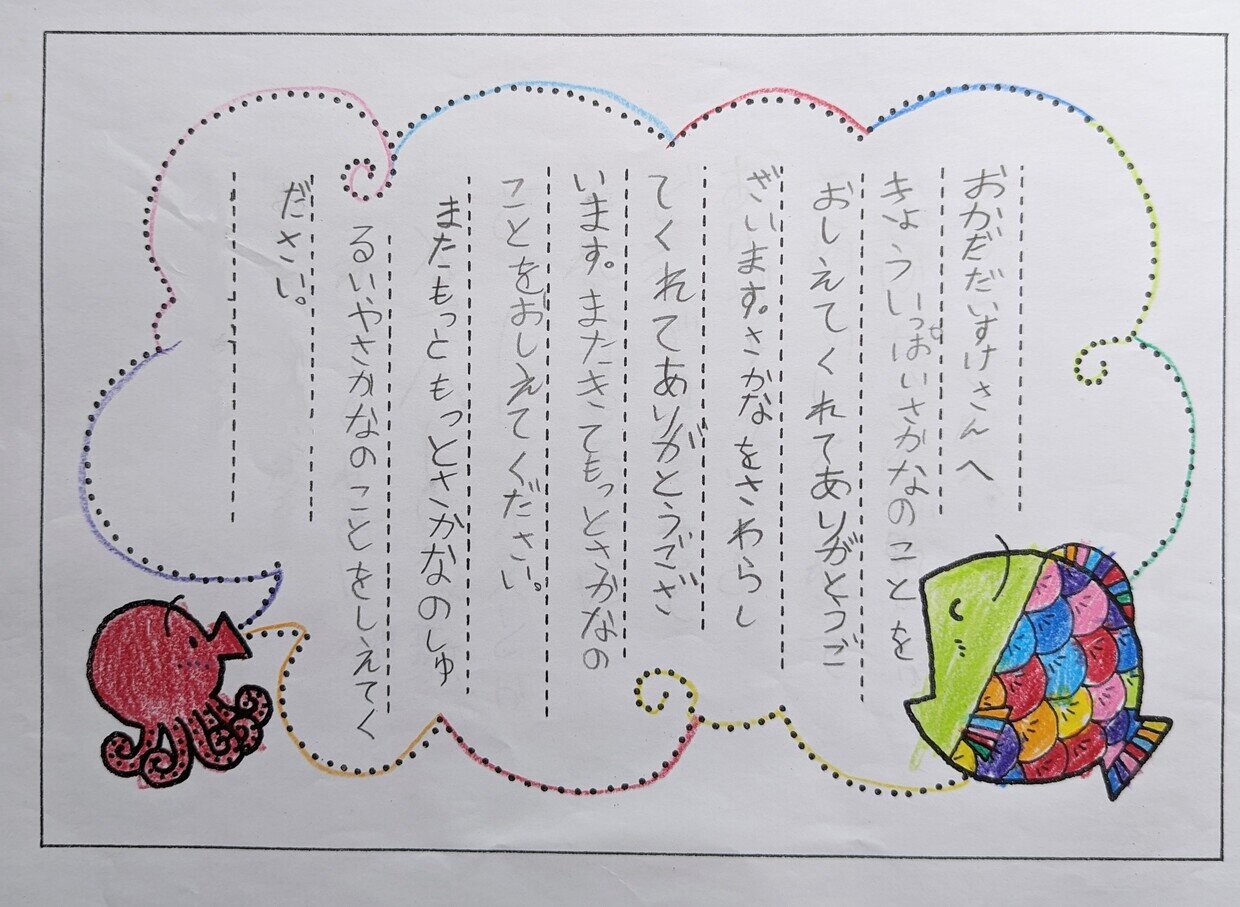 おかだだいすけさんへ
きょういっぱいさかなのことを
おしえてくれてありがとうご
ざいます。さかなをさわらし
てくれてありがとうござ
います。またきてもっとさかなの
ことをおしえてください。
またもっともっとさかなのしゅ
るいやさかなのことをしえてく
ださい。